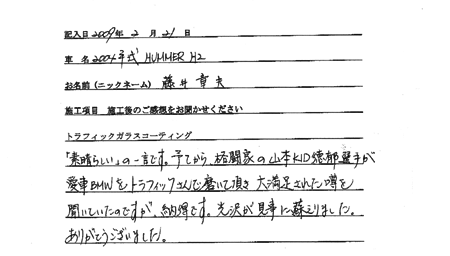 記入日 2009年 2月 21日
車 名 2004年式 HUMMER H2
お名前(ニックネーム) 藤井 章夫
施工項目 施工後のご感想をお聞かせください
トラフィックガラスコーティング
「素晴らしい」の一言です。予てから、格闘家の山本KID徳郁選手が
愛車BMWをトラフィックさんで磨いて頂き大満足された噂を
聞いていたのですが、納得です。光沢が見事に蘇りました。
ありがとうございました。